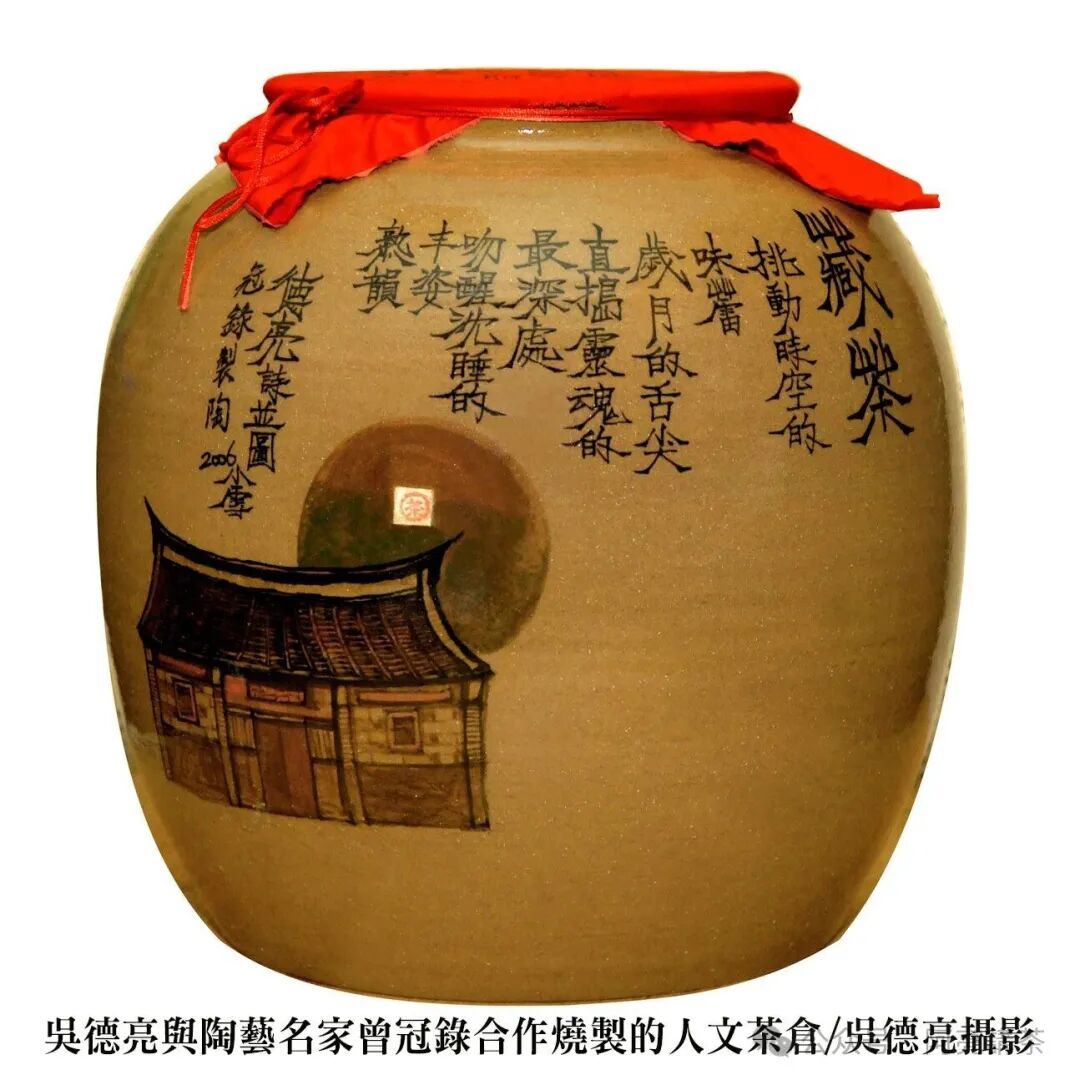 藏茶
挑動時空的
味蕾
歲月的舌尖
直搗靈魂的
最深處
吻醒沈睡的
丰姿
熟韻
德亮詩並圖
冠錄製陶 2006小雪
茶
吳德亮與陶藝名家曾冠錄合作燒製的人文茶倉/吳德亮攝影
公众号